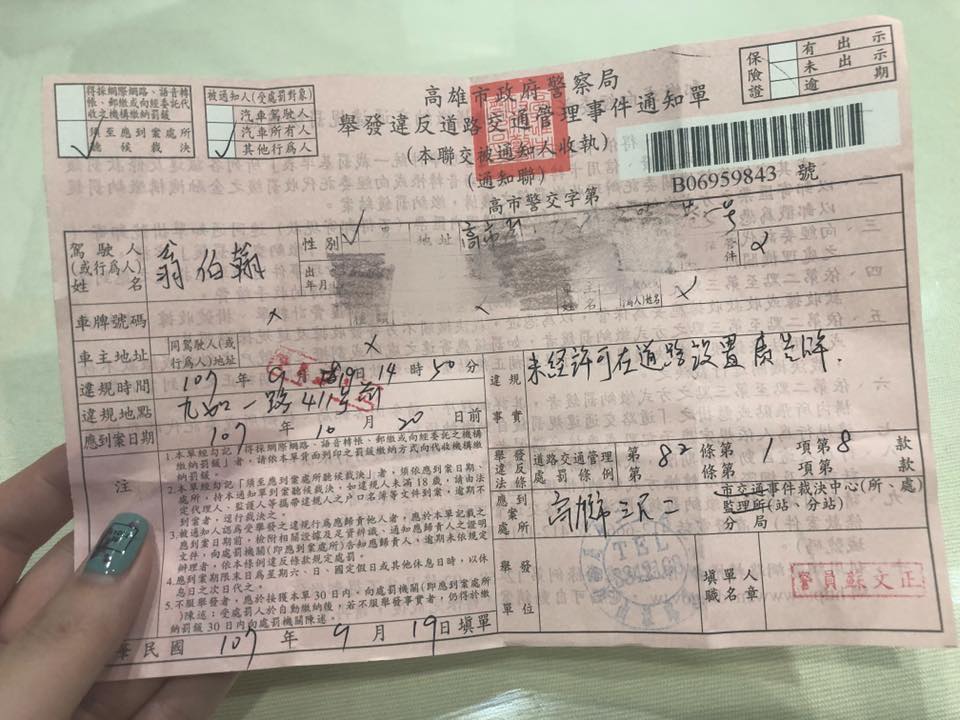 得採網際網路、語音轉帳、郵繳或向經委託代收之機構繳納罰鍰
須至應到案處所聽候裁決
被通知人(受處罰對象)
汽車駕駛人
汽車所有人
其他行為人
高雄市政府警察局
舉發違反道路交通管理事件通知單
(本聯交被通知人收執)
(通知聯)
高市警交字第
B06959843 號
保險證
有出示
未出示
逾期
駕駛人(或行為人)姓名
翁伯翰
性別
地址
高市
號
車牌號碼
x
車主地址
同駕駛人(或行為人)地址
x
違規時間
107年9月19日14時50分
違規地點
九如一路411號前
應到案日期
107年10月20日前
違規事實
未經許可在道路設置廣告牌.
舉發違反法條
道路交通管理處罰條例 第82條第1項第8款
第 條第 項第 款
應到案處所
市交通事件裁決中心(所、處)
監理所(站、分站)
分局
注
1.本單經勾記「得採網際網路、語音轉帳、郵繳或向經委託之機構繳納罰鍰」者,請依本單背面列印之罰鍰繳納方式向代收機構繳納罰鍰。
2.本單經勾記「須至應到案處所聽候裁決」者,須依應到案日期、處所,持本通知單到案聽候裁決,如違規人未滿18歲,請由法定代理人、監護人等攜帶違規人之戶口名簿等文件到案,逾期不到案者,逕行裁決之。
3.被通知人認為受舉發之違規行為應歸責他人者,應於本單記載之應到案日期前,檢附相關證據及足資辨識、通知應歸責人之證明文件,向處罰機關(即應到案處所)告知應歸責人、逾期未依規定辦理者,依本條例違反條款規定處罰。
4.應到案期限末日為星期六、日、國定假日或其他休息日時,以休息日之次日代之。
5.不服舉發者,應於接獲本單30日內,向處罰機關(即應到案處所)陳述;受處罰人於自動繳納後,若不服舉發事實者,仍得於繳納罰鍰30日內向處罰機關陳述。
舉發單位
TEL
填單人職名章
警員蘇文正
華民國 107年9月19日填單